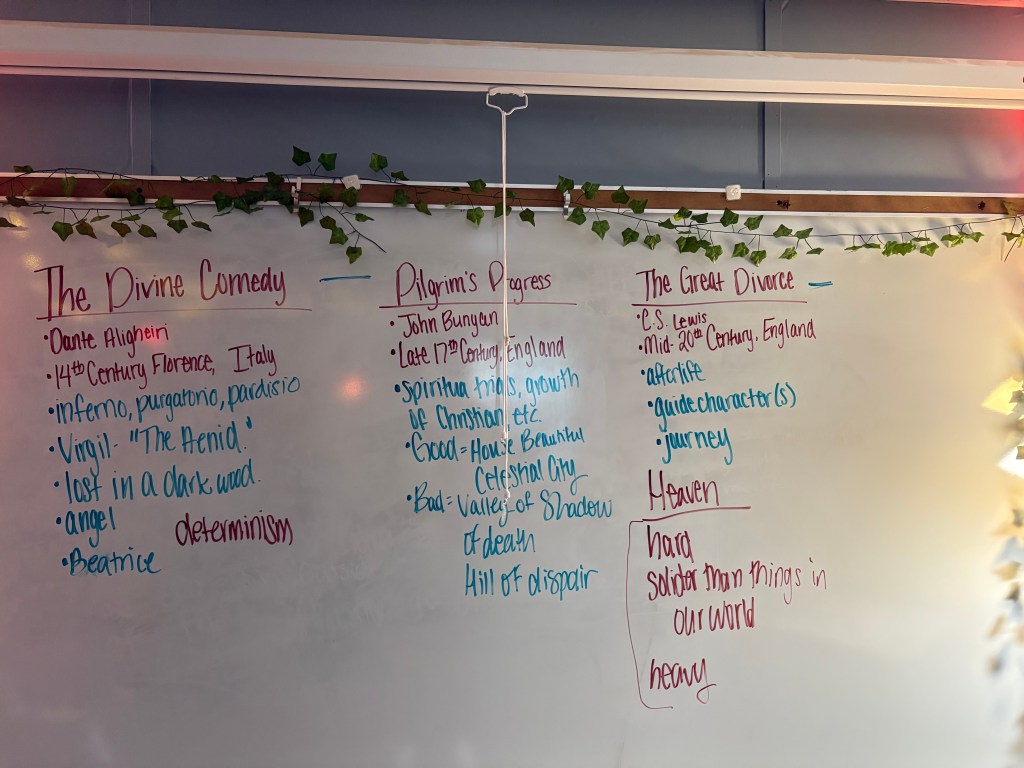 The Divine Comedy —
• Dante Aligheiri
• 14th Century Florence, Italy
• inferno, purgatorio, pardisio
• Virgil - "The Aenid."
• lost in a dark wood.
• angel
determinism
• Beatrice
Pilgrim's Progress
• John Bunyan
• Late 17th Century, England
• Spiritua trials, growth
of Christian, etc.
• Good = House Beautiful
Celestial City
• Bad = Valley of Shadow
of death
Hill of dispair
The Great Divorce —
• C.S. Lewis
• Mid-20th Century, England
• afterlife
• guide character(s)
• journey
Heaven
hard
solider than things in
our world
heavy